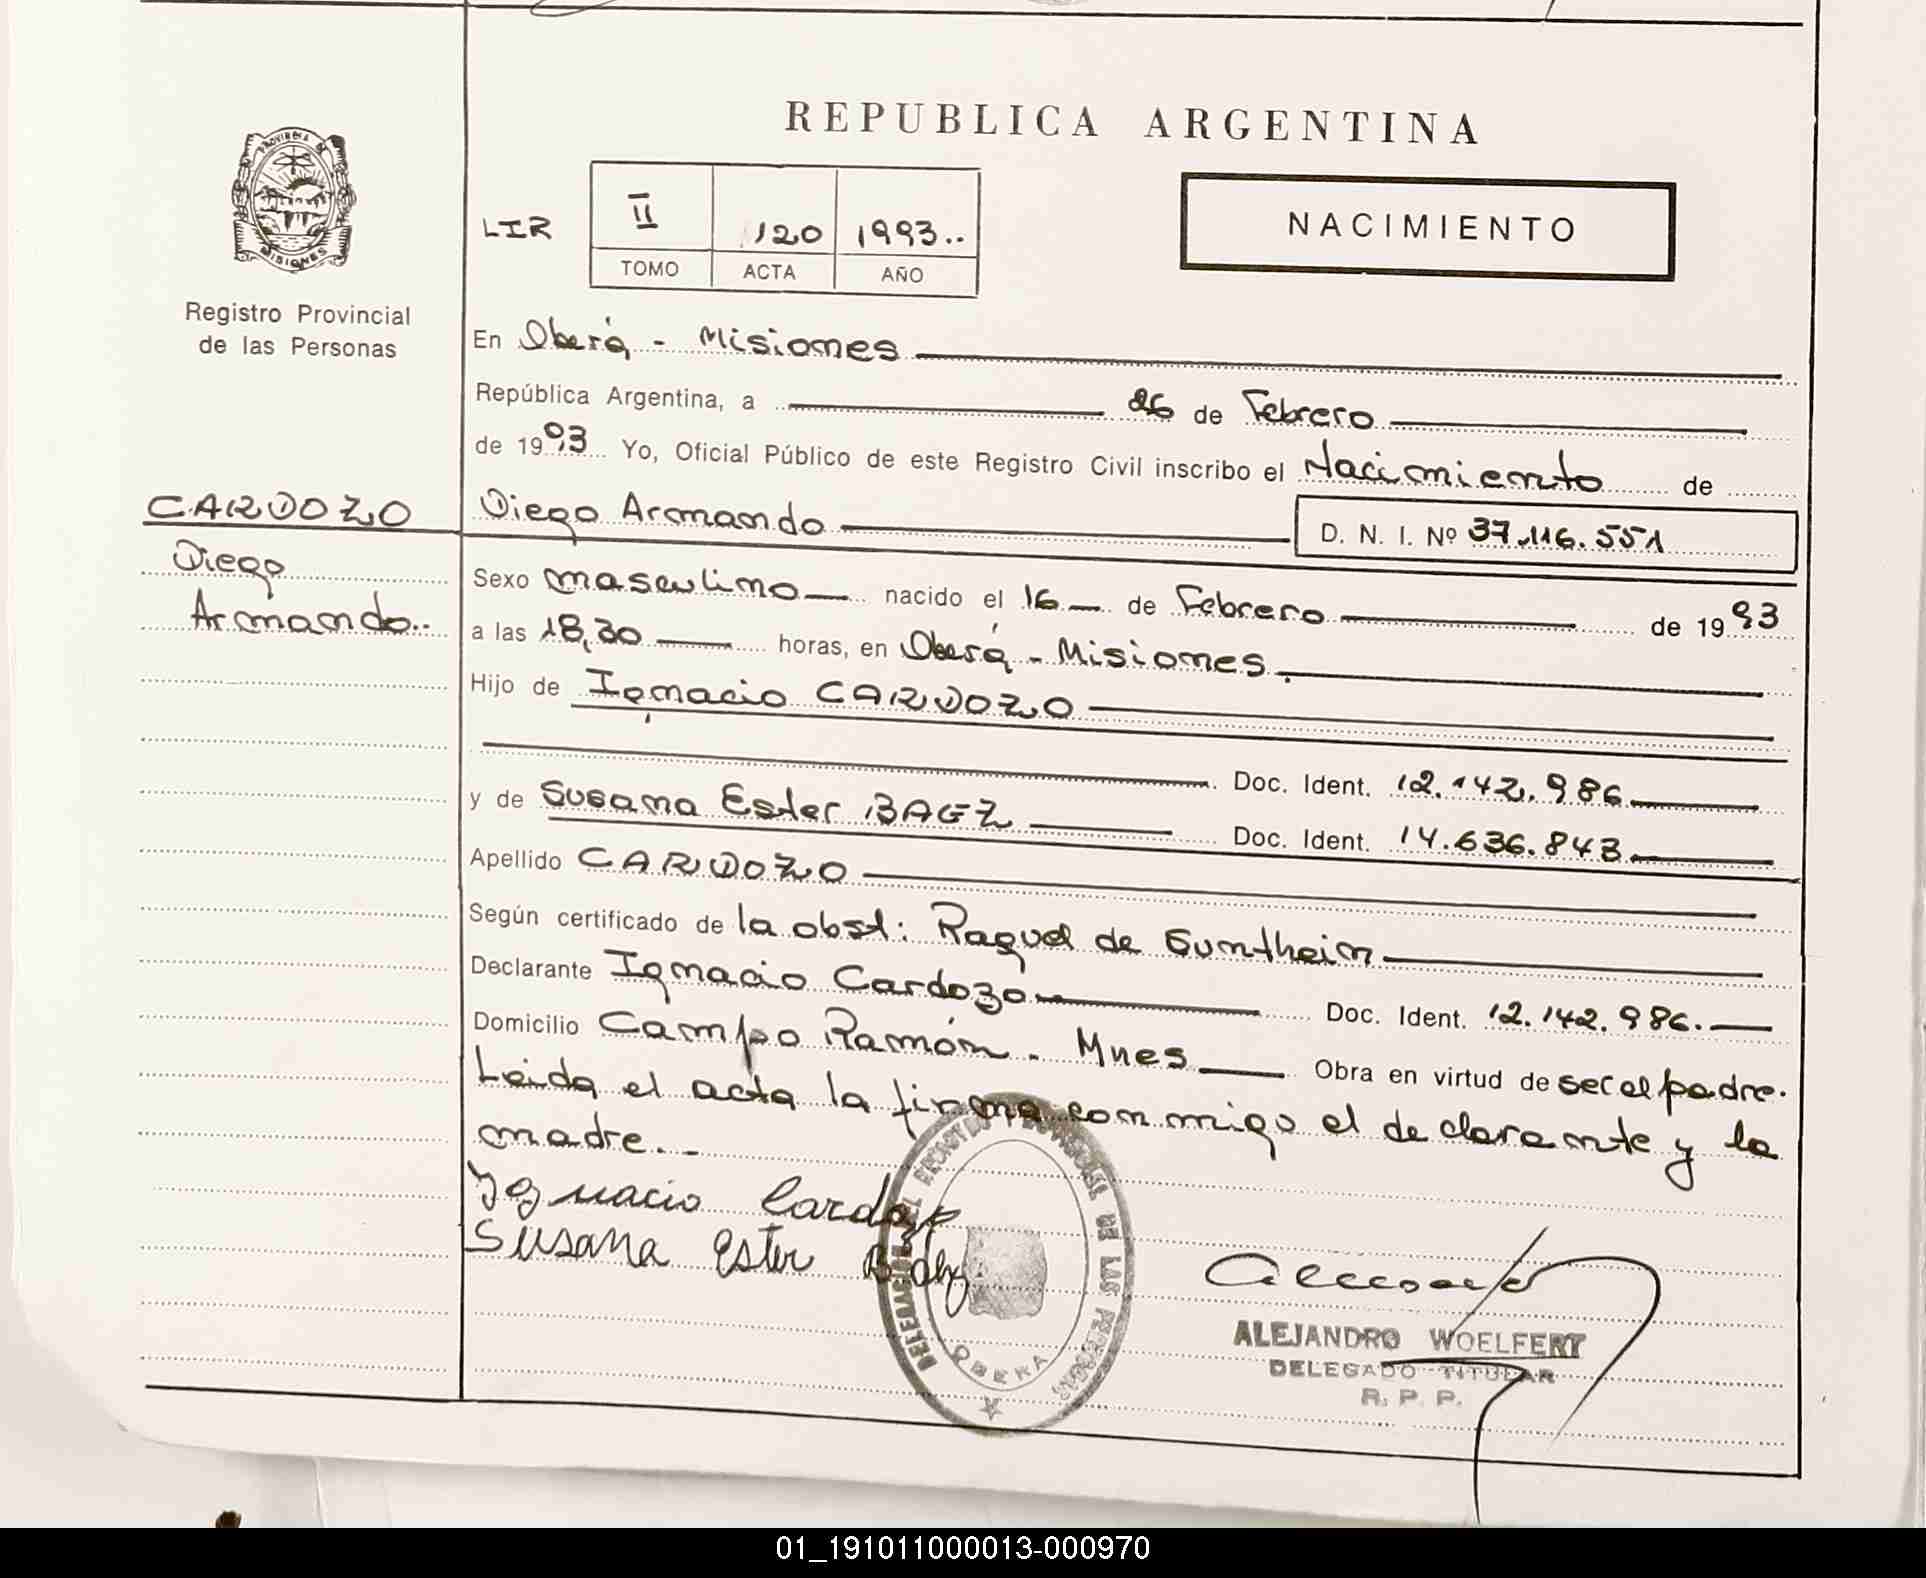 REPUBLICA ARGENTINA
PROVINCIA DE
MISIONES
Registro Provincial
de las Personas
LIR
II 120 1993..
TOMO ACTA AÑO
NACIMIENTO
En Oberá - Misiones
República Argentina, a 26 de Febrero
de 1993 Yo, Oficial Público de este Registro Civil inscribo el Nacimiento de
CARDOZO
Diego
Armando..
Diego Armando D. N. I. Nº 37.116.551
Sexo masculino nacido el 16 de Febrero de 1993
a las 18,30 horas, en Oberá - Misiones.
Hijo de Ignacio CARDOZO
Doc. Ident. 12.142.986
y de Susana Ester BAEZ Doc. Ident. 14.636.843
Apellido CARDOZO
Según certificado de la obst: Raquel de Suntheim
Declarante Ignacio Cardozo Doc. Ident. 12.142.986.
Domicilio Campo Ramón - Mnes Obra en virtud de ser el padre.
Leida el acta la firma conmigo el declarante y la
madre..
Ygnacio Cardozo
Susana Ester Baez
DELEGACION DEL REGISTRO PROVINCIAL DE LAS PERSONAS
OBERA
ALEJANDRO WOELFERT
DELEGADO TITULAR
R. P. P.
01_191011000013-000970